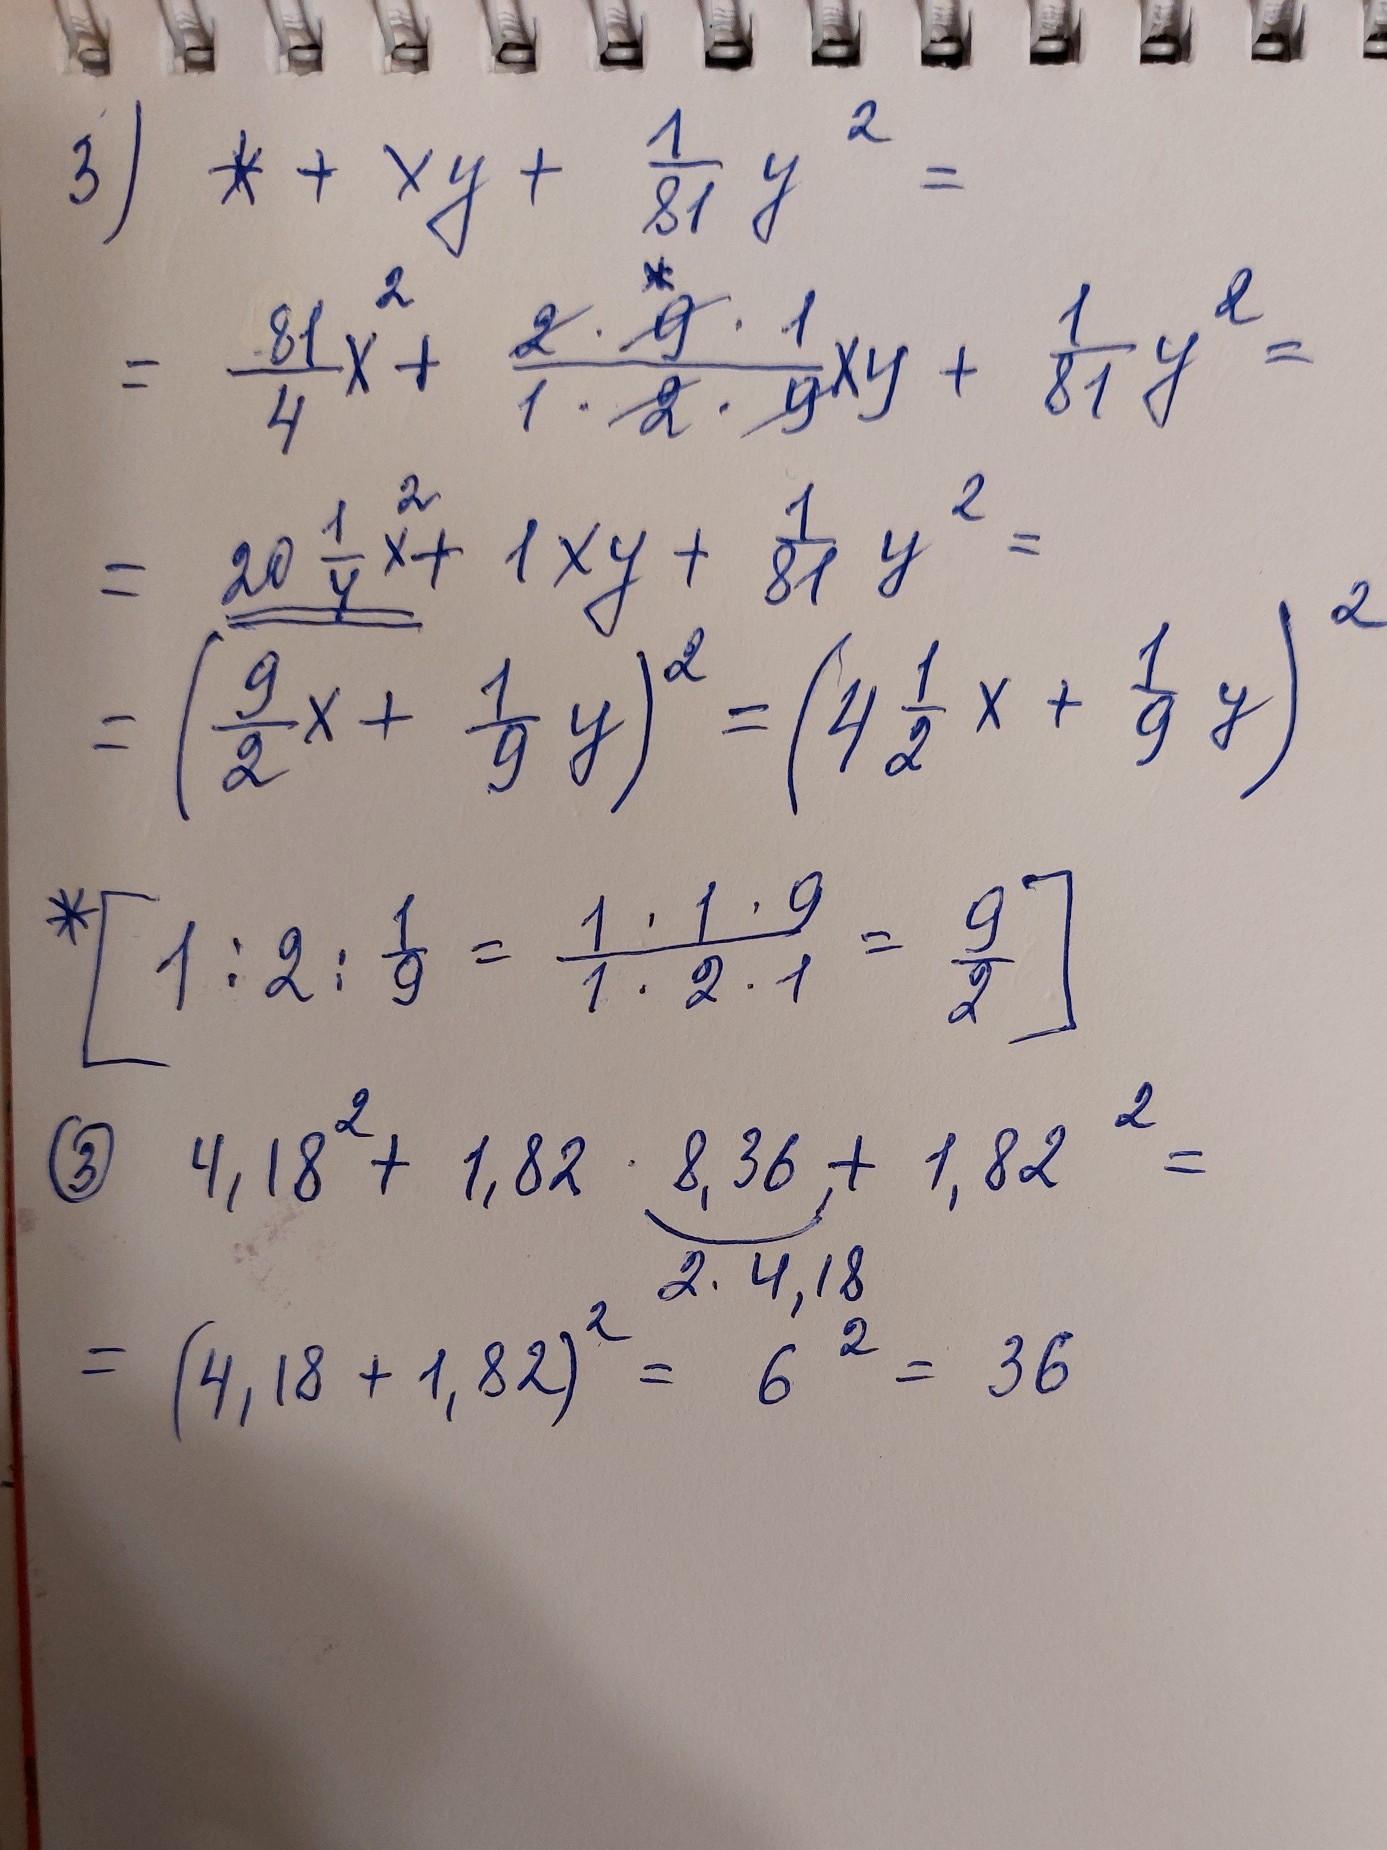 3) * + xy + 1/81 y² =
= 81/4 x² + 2 · 9* · 1 / 1 · 2 · 9 xy + 1/81 y² =
= 20 1/4 x² + 1xy + 1/81 y² =
= (9/2 x + 1/9 y)² = (4 1/2 x + 1/9 y)²
* [1 : 2 : 1/9 = 1 · 1 · 9 / 1 · 2 · 1 = 9/2]
③ 4,18² + 1,82 · 8,36 + 1,82² =
2 · 4,18
= (4,18 + 1,82)² = 6² = 36